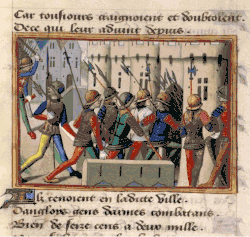 Car tousiours gaignoient et doubtoient
De ce qui leur aduint depuis.
Ilz tenoient en ladicte ville
Danglois gens darmes combatans
Bien de seize cens a deux mille